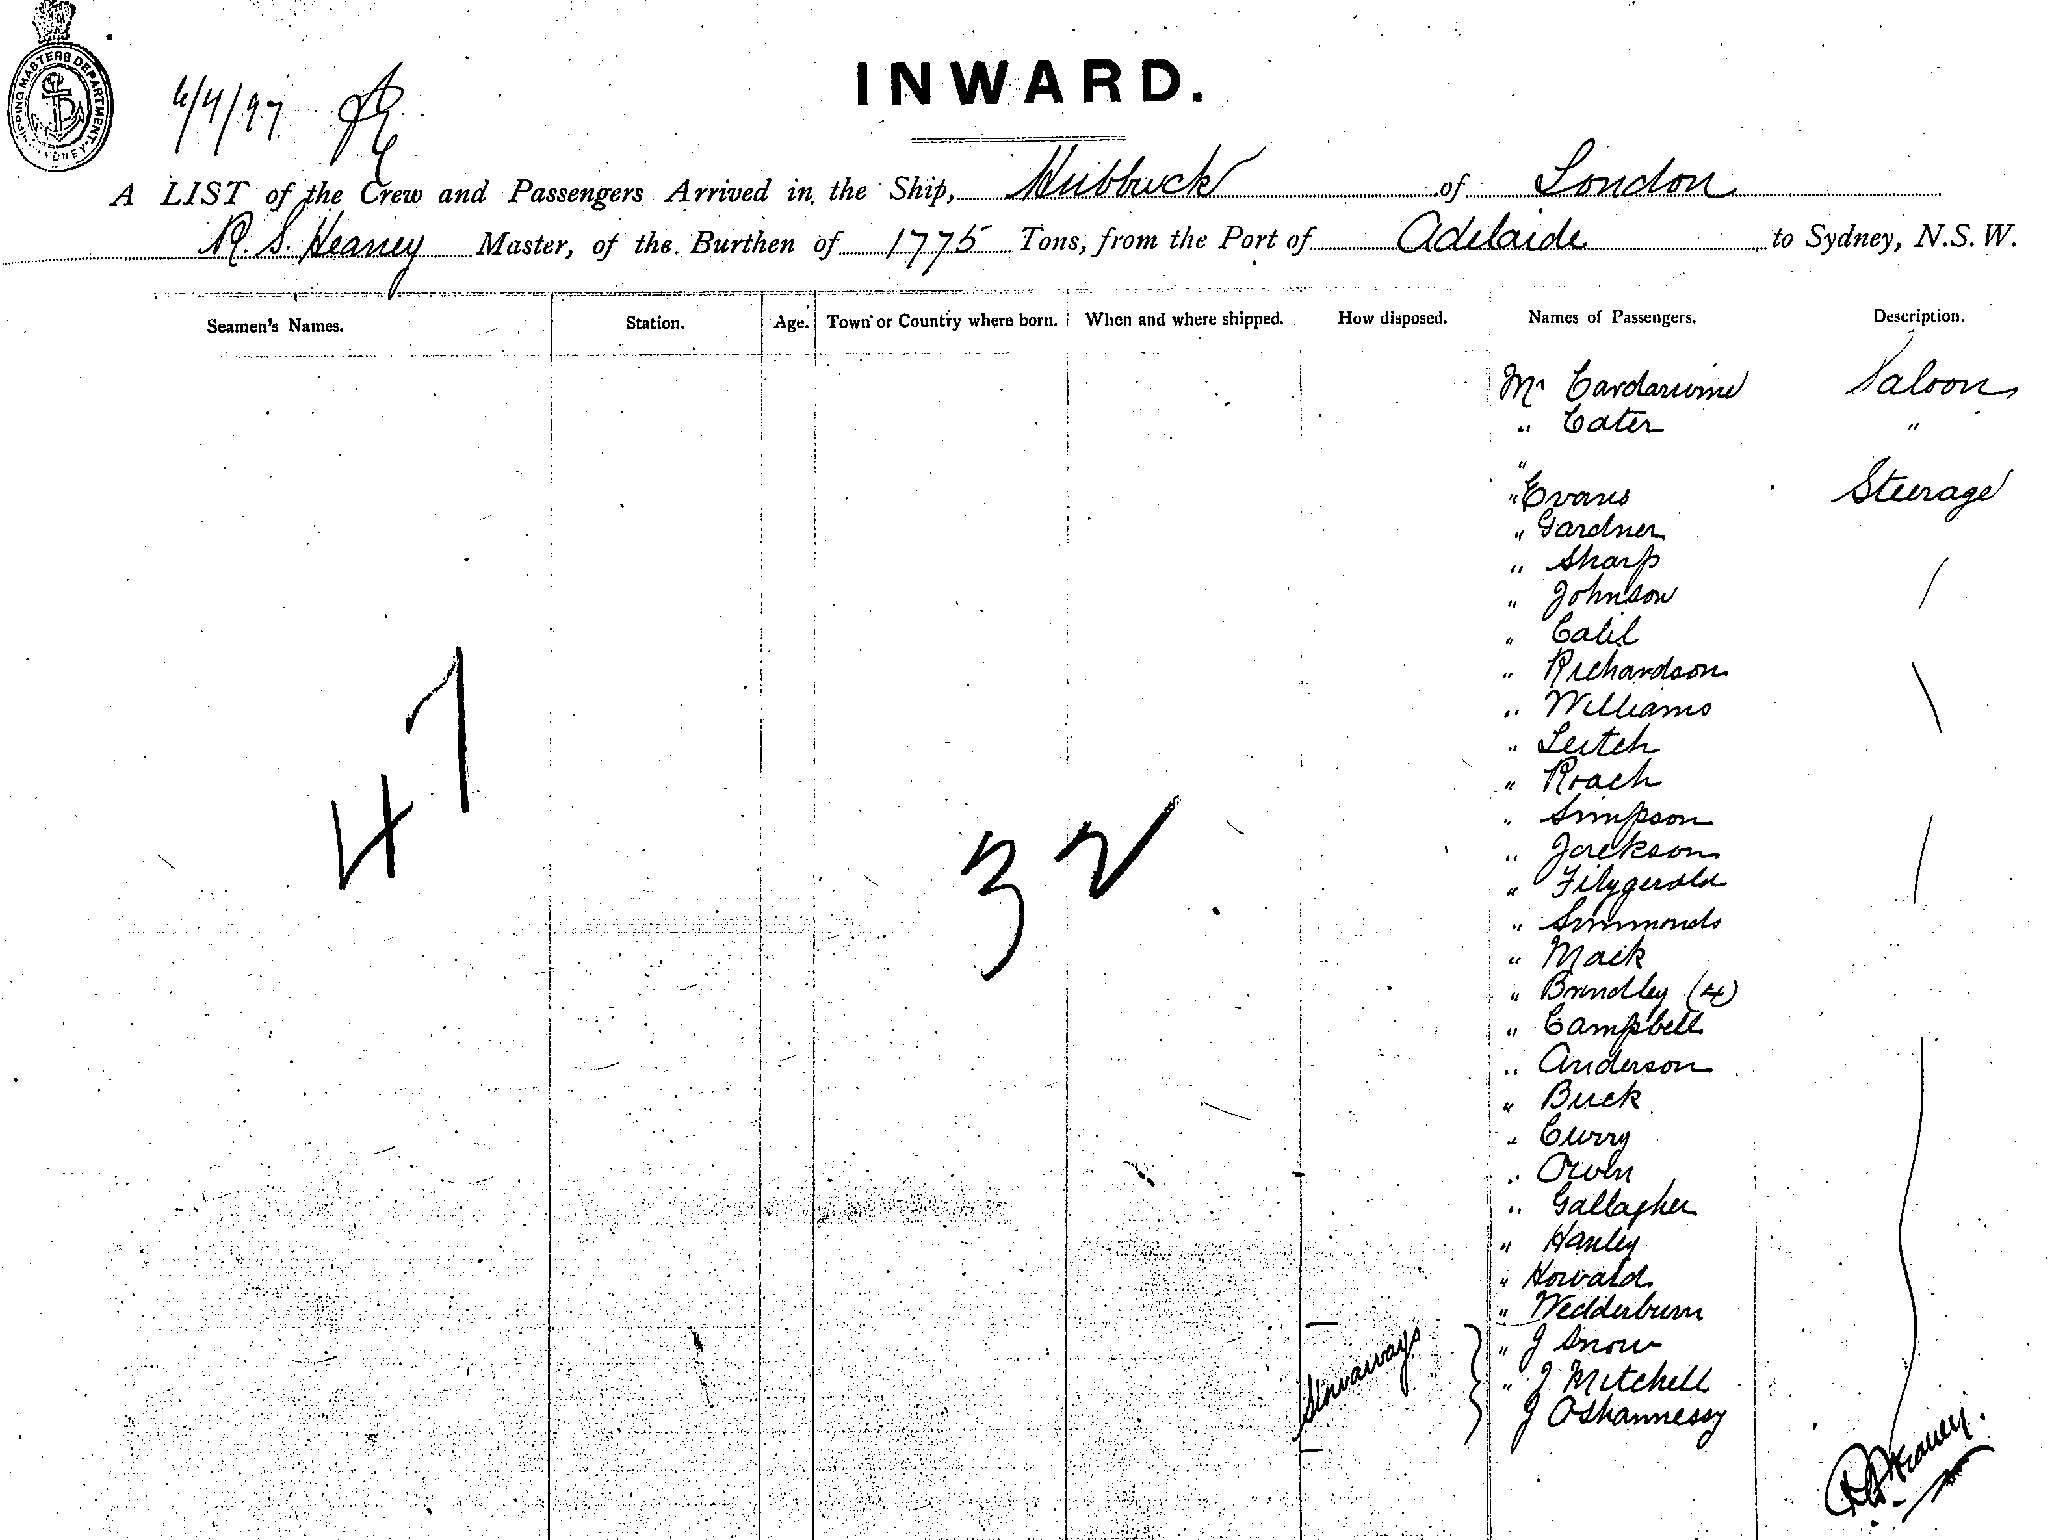 SHIPPING MASTERS DEPARTMENT SYDNEY
6/4/97
INWARD.
A LIST of the Crew and Passengers Arrived in the Ship, Hubbuck of London
R. S. Heaney Master, of the Burthen of 1775 Tons, from the Port of Adelaide to Sydney, N.S.W.
Seamen's Names. Station. Age. Town or Country where born. When and where shipped. How disposed. Names of Passengers. Description.
Mr Saloon
" Cater "
"
" Evans Steerage
" Gardner
" Sharp
" Johnson
" Calil
" Richardson
" Williams
" Leitch
" Roach
" Simpson
" Jackson
" Fitzgerald
" Simmonds
" Mack
" Brindley (4)
" Campbell
" Anderson
" Buck
" Curry
" Owen
" Gallagher
" Hanley
" Howard
" Wedderburn
" J Snow
" J Mitchell
J OShannessy
47
32
Stowaways
R S Heaney.